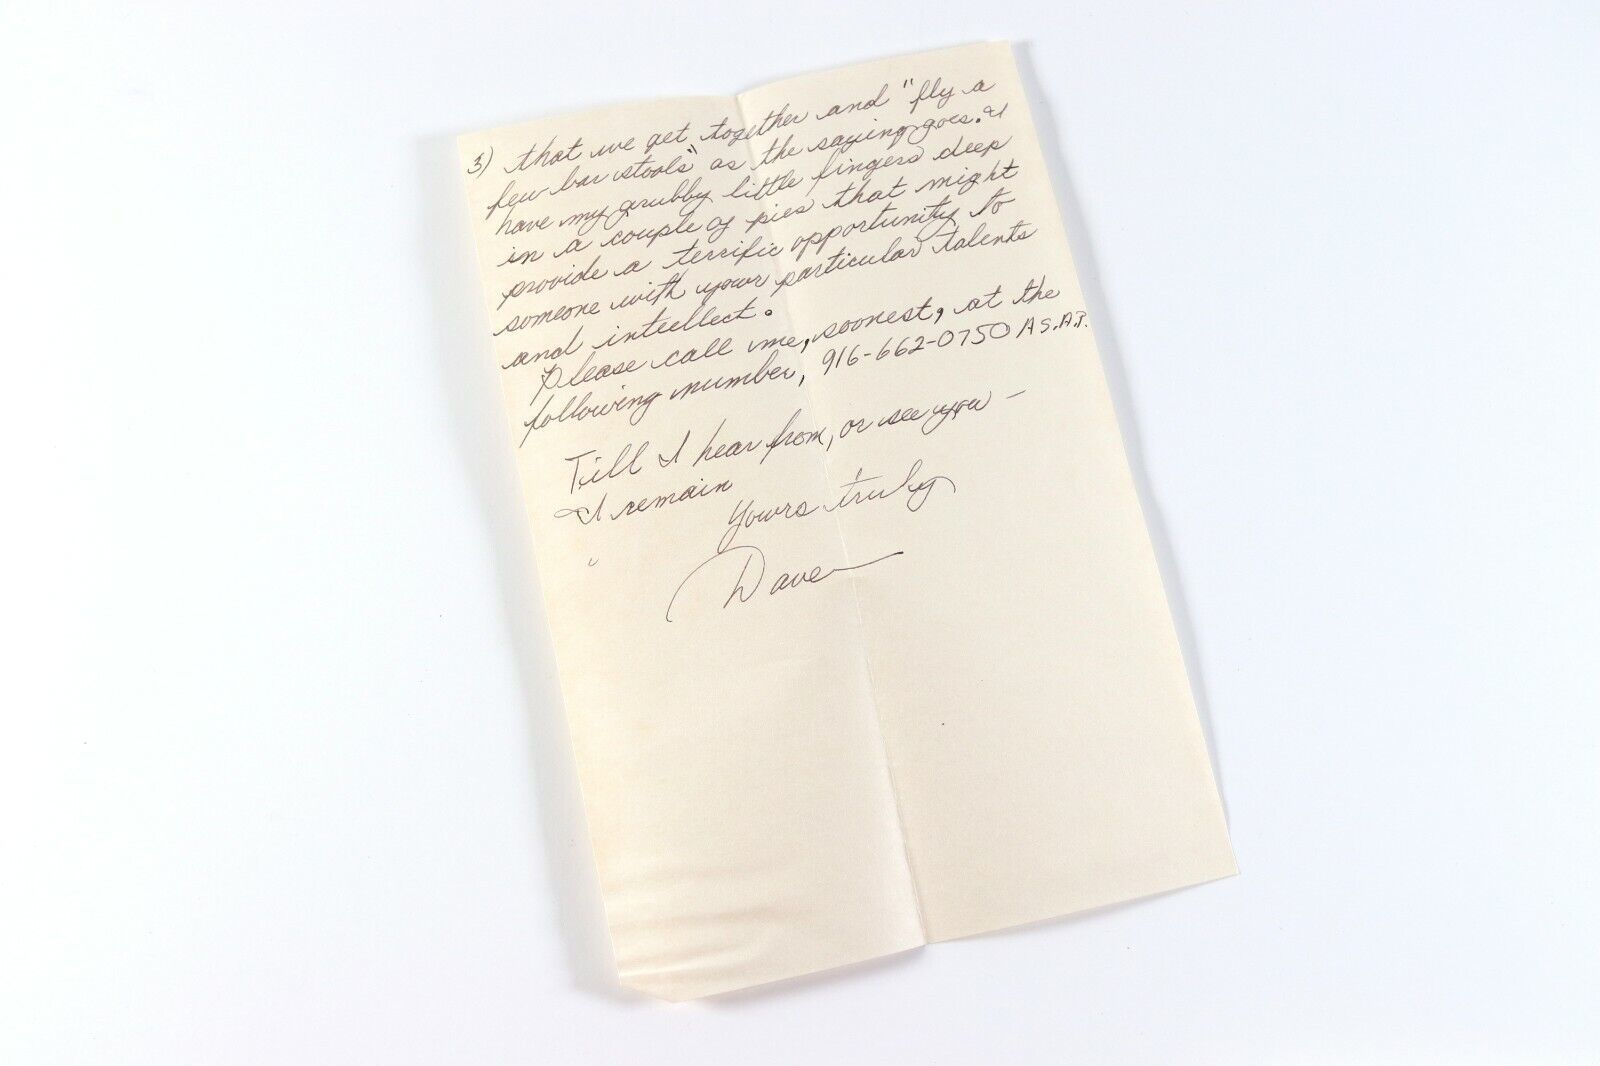 3) that we get together and "fly a
few bar stools" as the saying goes. I
have my grubby little fingers deep
in a couple of pies that might
provide a terrific opportunity to
someone with your particular talents
and intellect.
Please call me, soonest, at the
following number, 916-662-0750 A.S.A.P.
Till I hear from, or see you -
I remain
Yours truly
Dave